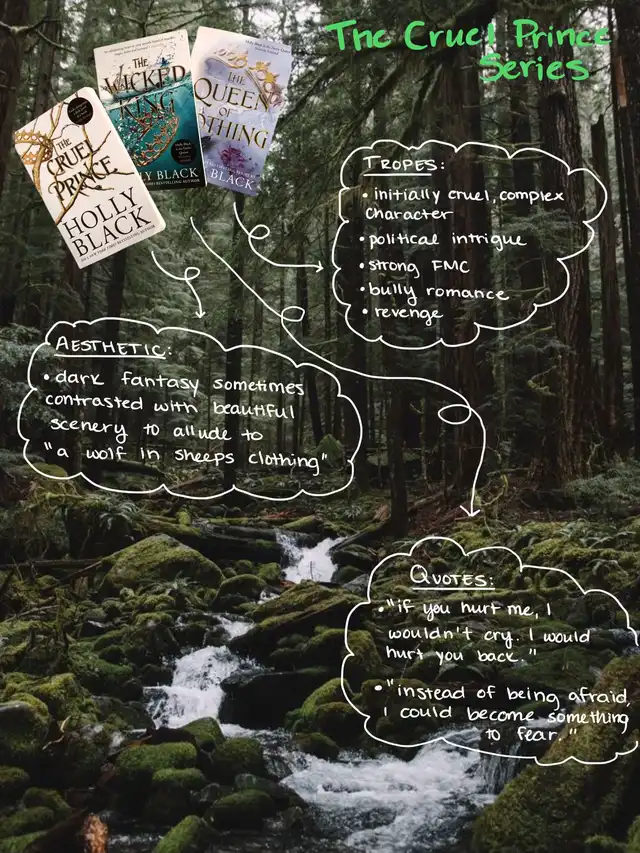 The Cruel Prince
Series
THE
CRUEL
PRINCE
HOLLY
BLACK
THE
WICKED
KING
LY BLACK
THE
QUEEN
OF
OTHING
BLACK
TROPES:
• initially cruel, complex
character
• political intrigue
• strong FMC
• bully romance
• revenge
AESTHETIC:
• dark fantasy sometimes
contrasted with beautiful
scenery to allude to
"a wolf in sheeps clothing"
QUOTES:
• "if you hurt me, I
wouldn't cry. I would
hurt you back."
• "instead of being afraid,
I could become something
to fear."